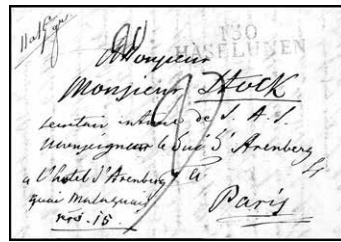 130
HASELUNEN
A Monsieur
Monsieur Stock
secretair intime de S. A. S.
Monseigneur le Duc d'Arenberg
a l'hotel d'Arenberg
quai Malaquais
nro. 15.
Paris